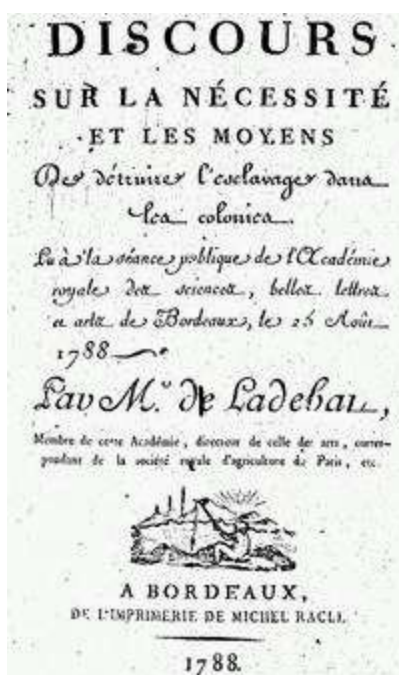 DISCOURS
SUR LA NÉCESSITÉ
ET LES MOYENS
De détruire l'esclavage dans
les colonies.
Lu à la séance publique de l'Académie
royale des sciences, belles lettres
et arts de Bordeaux, le 25 Août
1788
Par M.r de Ladebat,
Membre de cette Académie, directeur de celle des arts, corres-
pondant de la société royale d'agriculture de Paris, etc.
A BORDEAUX,
DE L'IMPRIMERIE DE MICHEL RACLE.
1788.